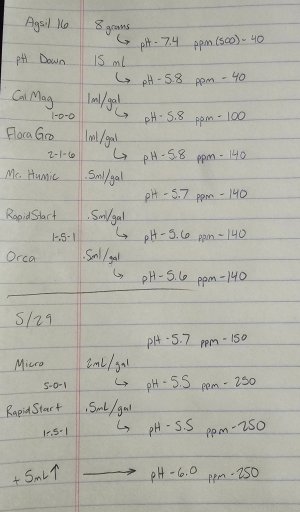 Agsil 16 8 grams
↳ pH - 7.4 ppm (500) - 40
pH Down 15 mL
↳ pH - 5.8 ppm - 40
Cal Mag 1ml/gal
1-0-0 ↳ pH - 5.8 ppm - 100
Flora Gro 1ml/gal
2-1-6 ↳ pH - 5.8 ppm - 140
Mr. Humic .5ml/gal
pH - 5.7 ppm - 140
RapidStart .5ml/gal
1-.5-1 ↳ pH - 5.6 ppm - 140
Orca .5ml/gal
↳ pH - 5.6 ppm - 140
5/29
pH - 5.7 ppm - 150
Micro 2ml/gal
5-0-1 ↳ pH - 5.5 ppm - 250
RapidStart .5ml/gal
1-.5-1 ↳ pH - 5.5 ppm - 250
+ 5mL ↑ → pH - 6.0 ppm - 250